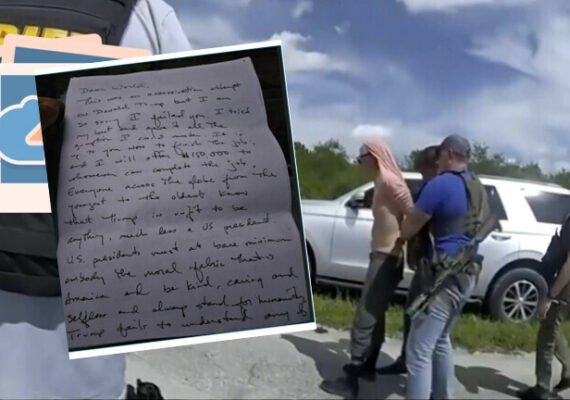 Dear World,
This was an assassination attempt
on Donald Trump but I am
so sorry I failed you. I tried
my best and gave it all the
gumption I could muster. It is
up to you now to finish the job;
and I will offer $150,000 to
whomever can complete the job.
Everyone across the globe from the
youngest to the oldest knows
that Trump is unfit to be
anything, much less a US president
U.S. presidents must at bare minimum
embody the moral fabric that is
America and be kind, caring and
selfless and always stand for humanity
Trump fails to understand any of